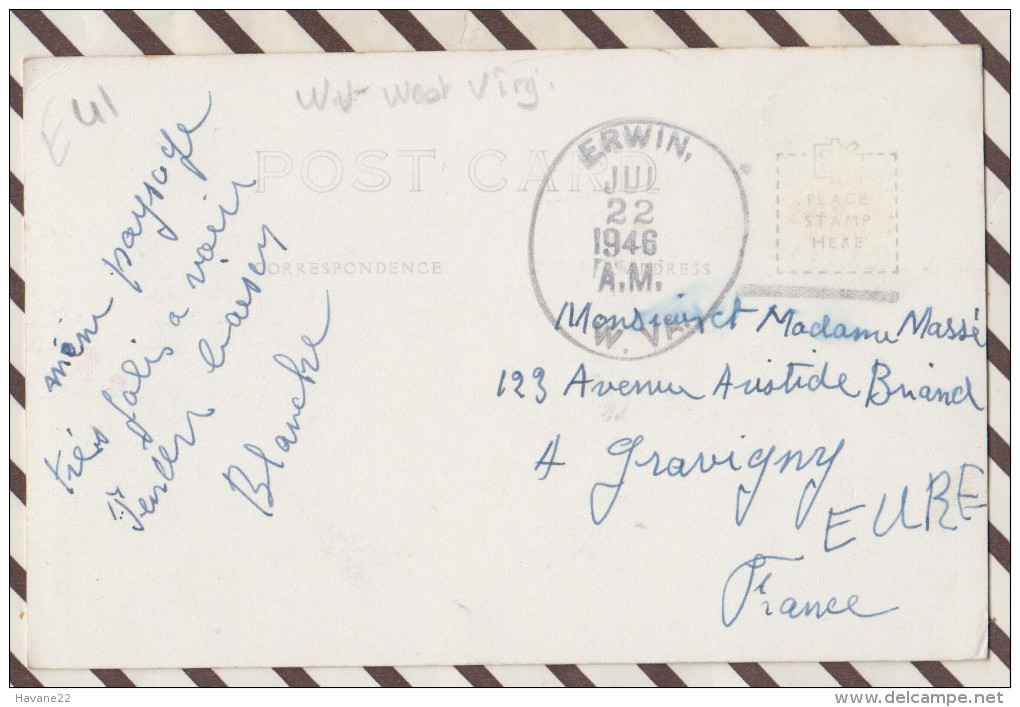 EU1
West Virg.
POST CARD
CORRESPONDENCE
ADDRESS
PLACE
STAMP
HERE
ERWIN,
JUL
22
1946
A.M.
W. VA.
même paysage
très jolis a voir
Tender baisers
Blanche
Monsieur et Madame Massé
123 Avenue Aristide Briand
A Gravigny
EURE
France
Havane22
www.delcampe.net